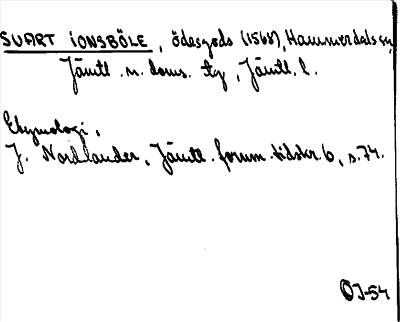 SVART IONSBÖLE, ödesgods (1568), Hammerdals sn,
Jämtl. n. doms. tg, Jämtl. l.
Etymologi,
J. Nordlander, Jämtl. fornm. tidskr. 6, s. 74.
OJ-54